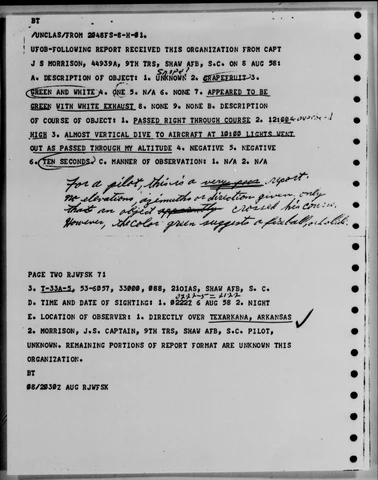 BT
/UNCLAS/FROM 2048FS-8-H-01.
UFOB-FOLLOWING REPORT RECEIVED THIS ORGANIZATION FROM CAPT
J S MORRISON, 44939A, 9TH TRS, SHAW AFB, S.C. ON 8 AUG 58:
A. DESCRIPTION OF OBJECT: 1. UNKNOWN 2. GRAPEFRUIT 3.
GREEN AND WHITE 4. ONE 5. N/A 6. NONE 7. APPEARED TO BE
GREEN WITH WHITE EXHAUST 8. NONE 9. NONE B. DESCRIPTION
OF COURSE OF OBJECT: 1. PASSED RIGHT THROUGH COURSE 2. 12:00
HIGH 3. ALMOST VERTICAL DIVE TO AIRCRAFT AT 10:00 LIGHTS WENT
OUT AS PASSED THROUGH MY ALTITUDE 4. NEGATIVE 5. NEGATIVE
6. TEN SECONDS. C. MANNER OF OBSERVATION: 1. N/A 2. N/A
For a pilot, this is a very poor report.
No elevations, azimuths or direction given, only
that an object apparently crossed his course.
However, the color green suggests a fireball,
PAGE TWO RJWFSK 71
3. T-33A-5, 53-6057, 33000, 088, 210IAS, SHAW AFB, S. C.
0222-5= 2122
D. TIME AND DATE OF SIGHTING: 1. 0222Z 6 AUG 58 2. NIGHT
E. LOCATION OF OBSERVER: 1. DIRECTLY OVER TEXARKANA, ARKANSAS
2. MORRISON, J.S. CAPTAIN, 9TH TRS, SHAW AFB, S.C. PILOT,
UNKNOWN. REMAINING PORTIONS OF REPORT FORMAT ARE UNKNOWN THIS
ORGANIZATION.
BT
08/2030Z AUG RJWFSK